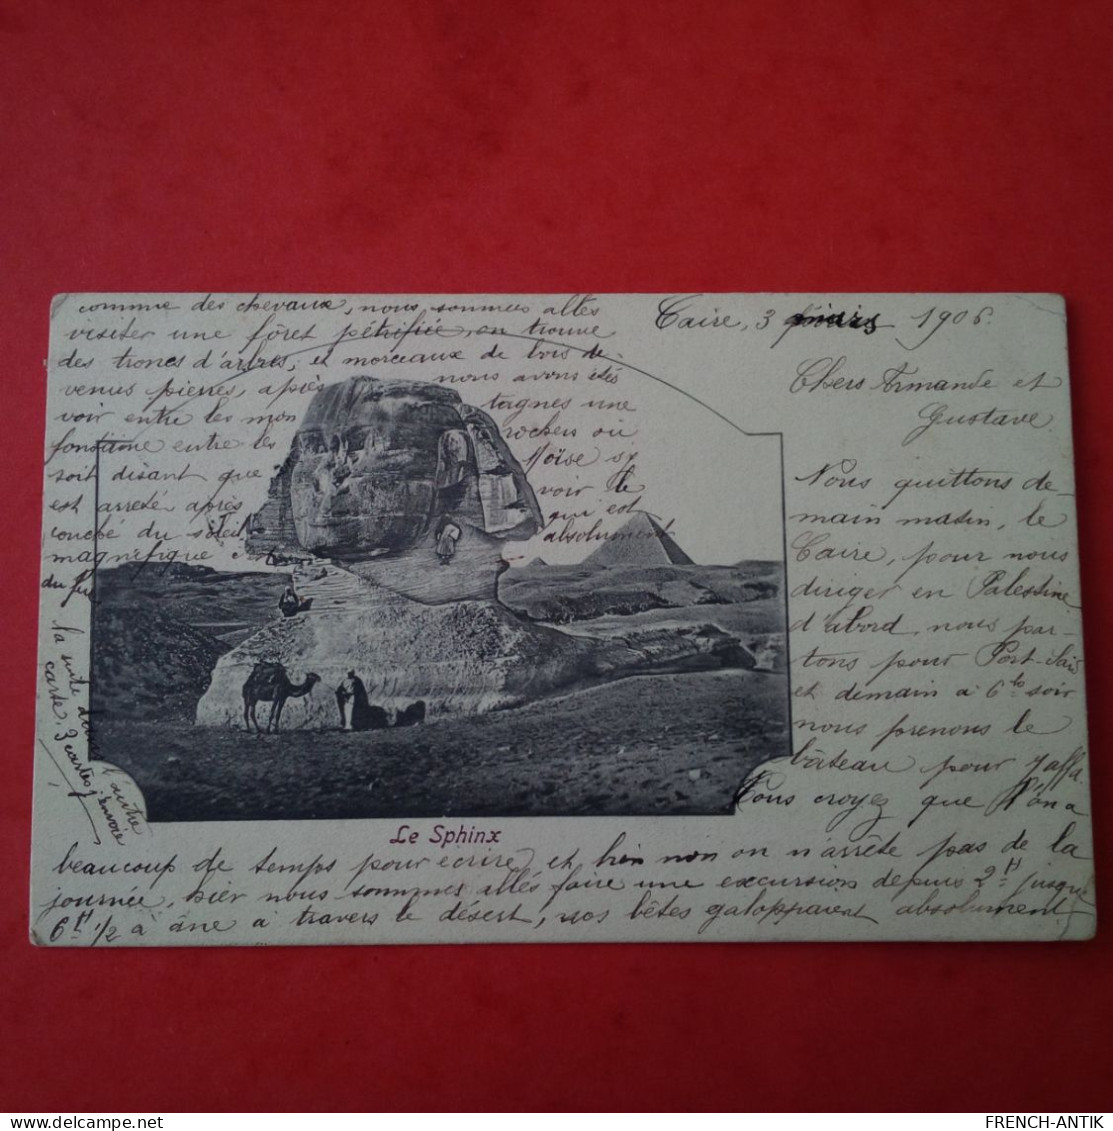 Caire, 3 mars 1906.
Chers Armande et
Gustave.
Nous quittons de-
main matin, le
Caire, pour nous
diriger en Palestine
d'abord, nous par-
tons pour Port-Saïd
et demain à 6 h. soir
nous prenons le
bâteau pour Jaffa.
Vous croyez que l'on a
beaucoup de temps pour ecrire, et bien non on n'arrête pas de la
journée, hier nous sommes allés faire une excursion depuis 2 H jusque
6 H 1/2 à âne à travers le désert, nos bêtes galoppaient absolument
comme des chevaux, nous sommes allés
visiter une fôret pétrifiée, on trouve
des troncs d'arbres, et morceaux de bois de-
venus pierres, après nous avons étés
voir entre les mon tagnes une
entre les rochers où
soit disant que Moïse s'
est arreté après voir le
couché du soleil qui est
magnifique absolument
la suite dans l'autre
carte. 3 cartes
Le Sphinx
FRENCH-ANTIK